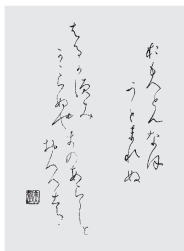 おもへともなほ
うとまれぬ
はるか須み
かゝらぬやまのあらしと
おもへは